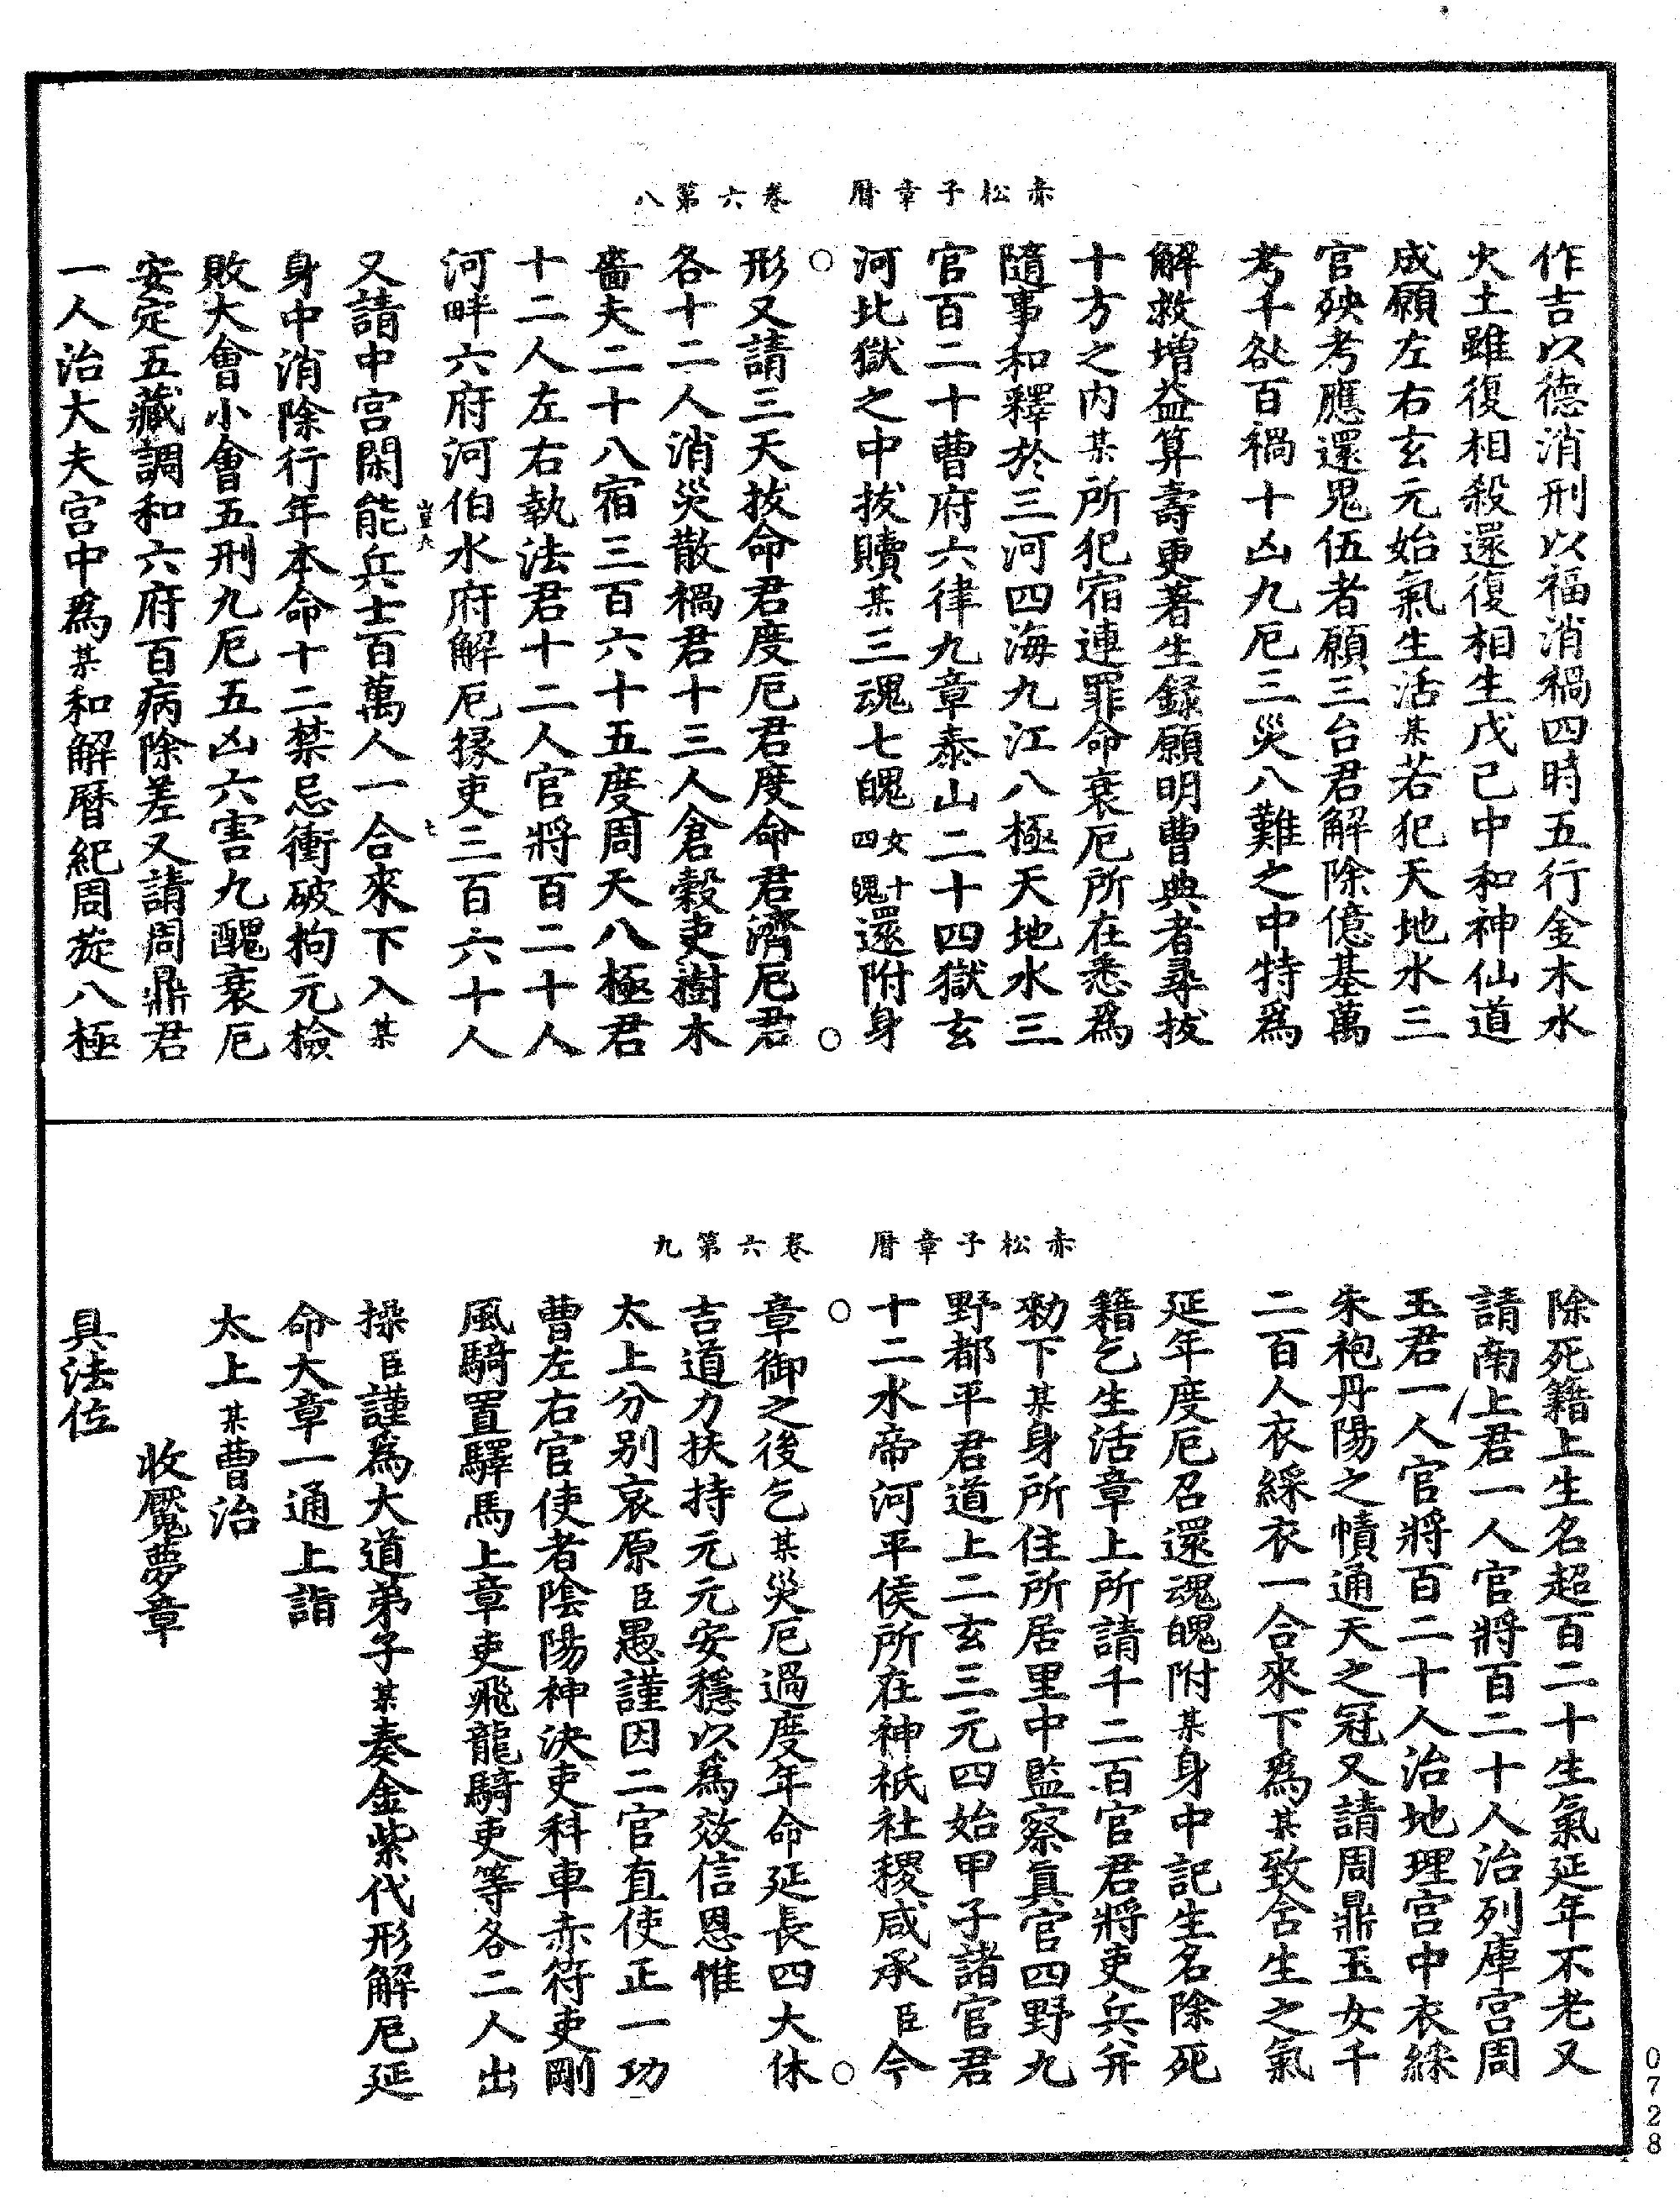 赤松子章曆　卷六第八
作吉以德消刑以福消禍四時五行金木水
火土雖復相殺還復相生戊己中和神仙道
成願左右玄元始氣生活某若犯天地水三
官殃考應還鬼伍者願三台君解除億基萬
考千愆百禍十凶九厄三災八難之中特為
解救增益算壽更著生錄願明曹典者尋拔
十方之內某所犯宿連罪命衰厄所在悉為
隨事和釋於三河四海九江八極天地水三
官百二十曹府六律九章泰山二十四獄玄
河比獄之中拔贖某三魂七魄女十四魄還附身
形又請三天拔命君度厄君度命君濟厄君
各十二人消災散禍君十三人倉穀吏樹木
嗇夫二十八宿三百六十五度周天八極君
十二人左右執法君十二人官將百二十人
河畔六府河伯水府解厄掾吏三百六十人
又請中宮閑能兵士百萬人一合來下入某
身中消除行年本命十二禁忌衝破拘元檢
敗大會小會五刑九厄五凶六害九醜衰厄
安定五藏調和六府百病除差又請周鼎君
一人治大夫宮中為某和解曆紀周旋八極
赤松子章曆　卷六第九
除死籍上生名超百二十生氣延年不老又
請南上君一人官將百二十人治列庫宮周
玉君一人官將百二十人治地理宮中衣綵
朱袍丹陽之幘通天之冠又請周鼎玉女千
二百人衣綵衣一合來下為某致含生之氣
延年度厄召還魂魄附某身中記生名除死
籍乞生活章上所請千二百官君將吏兵并
勑下某身所住所居里中監察真官四野九
野都平君道上二玄三元四始甲子諸官君
十二水帝河平侯所在神祇社稷咸承臣今
章御之後乞某災厄過度年命延長四大休
吉道力扶持元元安穩以為效信恩惟
太上分別哀原臣愚謹因二官直使正一功
曹左右官使者陰陽神決吏科車赤符吏剛
風騎置驛馬上章吏飛龍騎吏等各二人出
操臣謹為大道弟子某奏金紫代形解厄延
命大章一通上詣
太上某曹治
收魘夢章
具法位
0728